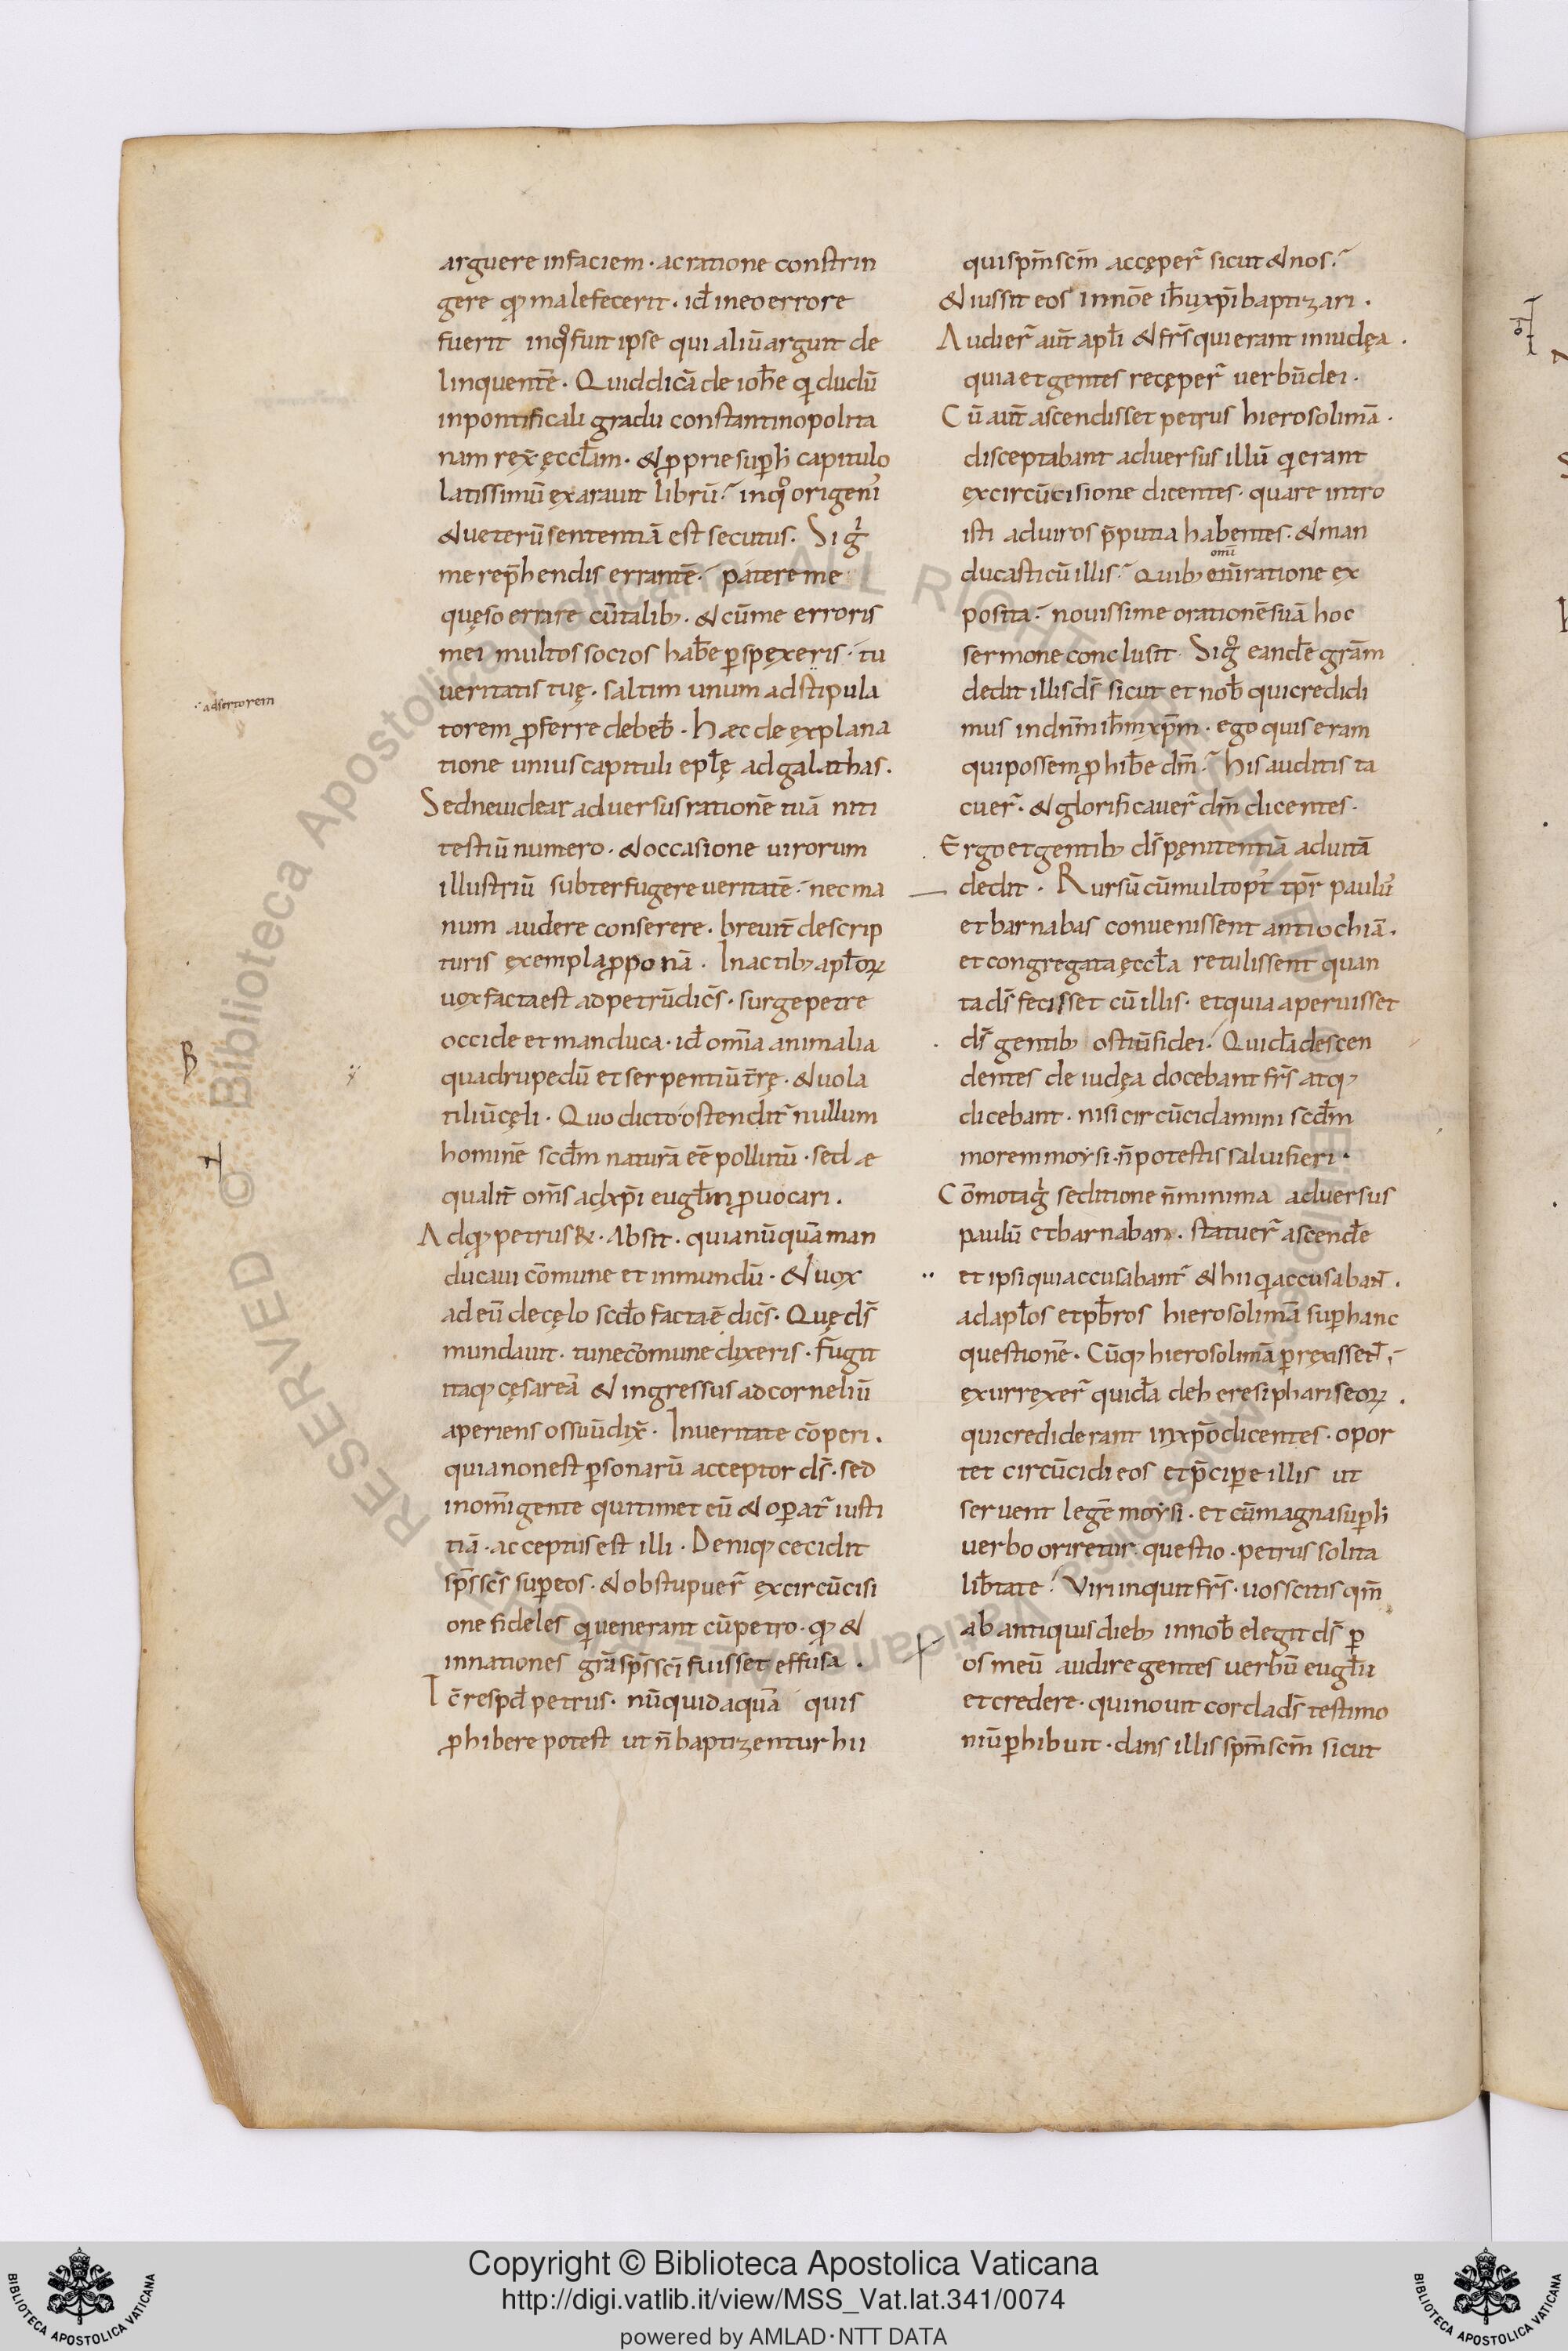 arguere infaciem · acratione constrin
gere qđ malefecerit · id̄ ineoerrore
fuerit inq̊ fuit ipse qui aliūarguit de
linquentē · Quiddicā de ioh̄e qi dudū
inpontificali gradu constantinopolita
nam rex̄ ęccl̄am · &ꝓprie suꝑh capitulo
latissimū exarauit librū · inq̊ origenī
&ueterūsententiā est secutus · Si g̊
me rep̄hendis errantē · patere me
quęso errare cūtalib; · &cūme erroris
mei multos socios hab̄e ꝑspexeris · tu
ueritatis tuę · saltim unum adstipula
torem ꝓferre debeb̄ · Hæc de explana
tione unius capituli epl̄ę adgalathas ·
Sedneuidear aduersusrationē tuā niti
testiū numero · &occasione uirorum
illustriū subterfugere ueritatē · nec ma
num audere conserere · breuit̄ descrip
turis exemplaꝓponā · Inactib; apl̄oꝝ
uoxfactaest adpetrūdicēs · surgepetre
occide et manduca · id̄ om̄ia animalia
quadrupedū et serpentiūt̄rę · &uola
tiliūcęli · Quo dicto · ostendit̄ nullum
hominē scd̄m naturā eē pollutū · sed æ
qualit̄ om̄s adxp̄i eugl̄m ꝓuocari ·
Adq;petrus℟ · Absit · quianūquāman
ducaui cōmune et inmundū · &uox
ad eū decęlo scd̄o factaē dicēs · Quę ds̄
mundauit · tunecōmune dixeris · Fugit
itaq; cęsareā & ingressus adcorneliū
aperiens ossuūdix̄ · Inueritate cōperi ·
quianonest ꝑsonarū acceptor ds̄ · sed
inom̄igente quitimet eū &oꝑat̄ iusti
tiā · acceptusest illi · Deniq; cecidit
sp̄sscs̄ suꝑeos · &obstupuer̄ excircūcisi
one fideles qi uenerant cūpetro · qđ &
innationes gr̄a sp̄sscī fuisset effusa ·
Tc̄ respd̄ petrus · nūquidaquā quis
ꝓhibere potest ut n̄ baptizentur hii
quisp̄mscm̄ accęper̄ sicut &nos ·
&iussit eos innōe ih̄uxp̄i baptizari ·
Audier̄ aut̄ apl̄i &fr̄s quierant iniudęa ·
quiaetgentes recęper̄ uerbūdei ·
Cū aut̄ ascendisset petrus hierosolimā ·
disceptabant aduersus illū qi erant
excircūcisione dicentes · quare intro
isti aduiros p̄putia habentes · &man
ducasti cū illis · Quib; om̄ratione ex
omī
posita · nouissime orationēsuā hoc
sermone conclusit · Sig̊ eand̄e gr̄am
dedit illisds̄ sicut et nob̄ quicredidi
mus indn̄mih̄mxp̄m · ego quis eram
quipossemꝓhib̄e dm̄ · His auditis ta
cuer̄ · &glorificauer̄ dm̄ dicentes ·
Ergoetgentib; ds̄ pęnitentiā aduitā
dedit · Rursūcūmultop̄t tp̄r paulū
etbarnabas conuenissent antiochiā ·
et congregata ęccl̄a retulissent quan
ta ds̄ fecisset cū illis · etquia aperuisset
ds̄ gentib; ostiūfidei · Quid̄a descen
dentes de iudęa docebant fr̄s atq;
dicebant · nisi circūcidamini scd̄m
moremmoysi · n̄potestis saluifieri ·
Cōmotag̊ seditione n̄minima aduersus
paulū etbarnaban · statuer̄ ascend̄e
et ipsi quiaccusabant̄ &hii qi accusabant̄ ·
adapl̄os etpb̄ros hierosolimā suꝑhanc
questionē · Cūq; hierosolimā ꝑrexissent̄ ·
exurrexer̄ quid̄a deheresi phariseoꝝ ·
quicrediderant inxp̄odicentes · opor
tet circūcidi eos etp̄ciꝑe illis ut
seruent legē moysi · et cūmagnasuꝑh
uerbo oriretur questio · petrus solita
lib̄tate · Viriinquit fr̄s · uosscitis qm̄
ab antiquis dieb; innob̄ elegit ds̄ ꝑ
os meū audire gentes uerbū eugl̄ii
etcredere · quinouit cordads̄ testimo
niūꝑhibuit · dans illis sp̄mscm̄ sicut
·adsertorem
Copyright © Biblioteca Apostolica Vaticana
http://digi.vatlib.it/view/MSS_Vat.lat.341/0074
powered by AMLAD·NTT DATA